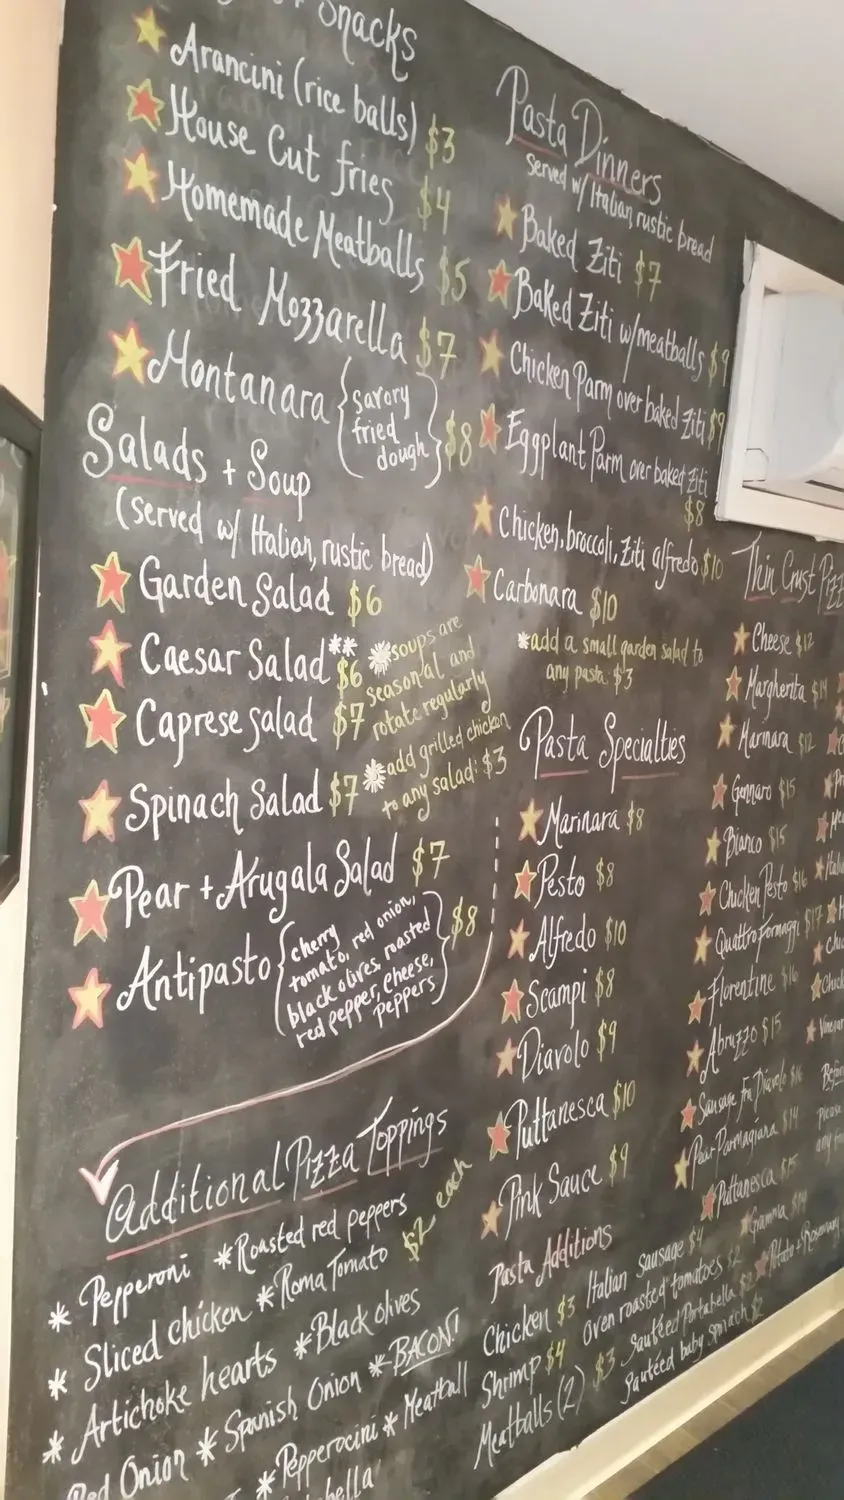 Snacks
Arancini (rice balls) $3
House Cut fries $4
Homemade Meatballs $5
Fried Mozzarella $7
Montanara {savory
fried
dough} $8
Salads + Soup
(served w/ Italian, rustic bread)
Garden Salad $6
Caesar Salad** $6
Caprese Salad $7
Spinach Salad $7
Pear + Arugala Salad $7
Antipasto {cherry
tomato, red onion,
black olives, roasted
red pepper, cheese,
peppers} $8
*soups are
seasonal and
rotate regularly
*add grilled chicken
to any salad: $3
Additional Pizza Toppings
$2 each
* Pepperoni * Roasted red peppers
* Sliced chicken * Roma Tomato
* Artichoke hearts * Black olives
Red Onion * Spanish Onion * BACON!
* Pepperocini * Meatball
Pasta Dinners
served w/ Italian, rustic bread
Baked Ziti $7
Baked Ziti w/meatballs $9
Chicken Parm over baked Ziti $9
Eggplant Parm over baked Ziti
$8
Chicken, broccoli, Ziti alfredo $10
Carbonara $10
*add a small garden salad to
any pasta: $3
Pasta Specialties
Marinara $8
Pesto $8
Alfredo $10
Scampi $8
Diavolo $9
Puttanesca $10
Pink Sauce $9
Pasta Additions
Chicken $3 Italian Sausage $4
Shrimp $4 oven roasted tomatoes $2
Meatballs (2) $3 Sautéed Portabella $2
Sautéed baby spinach $2
Thin Crust
Cheese $12
Margherita $14
Marinara $12
Gennaro $15
Bianco $15
Chicken Pesto $16
Quattro Formaggi $17
Florentine $16
Abruzzo $15
Sausage Fra Diavolo $16
Pear Parmagiana $14
Puttanesca $15
Gramma $14
Potato + Rosemary